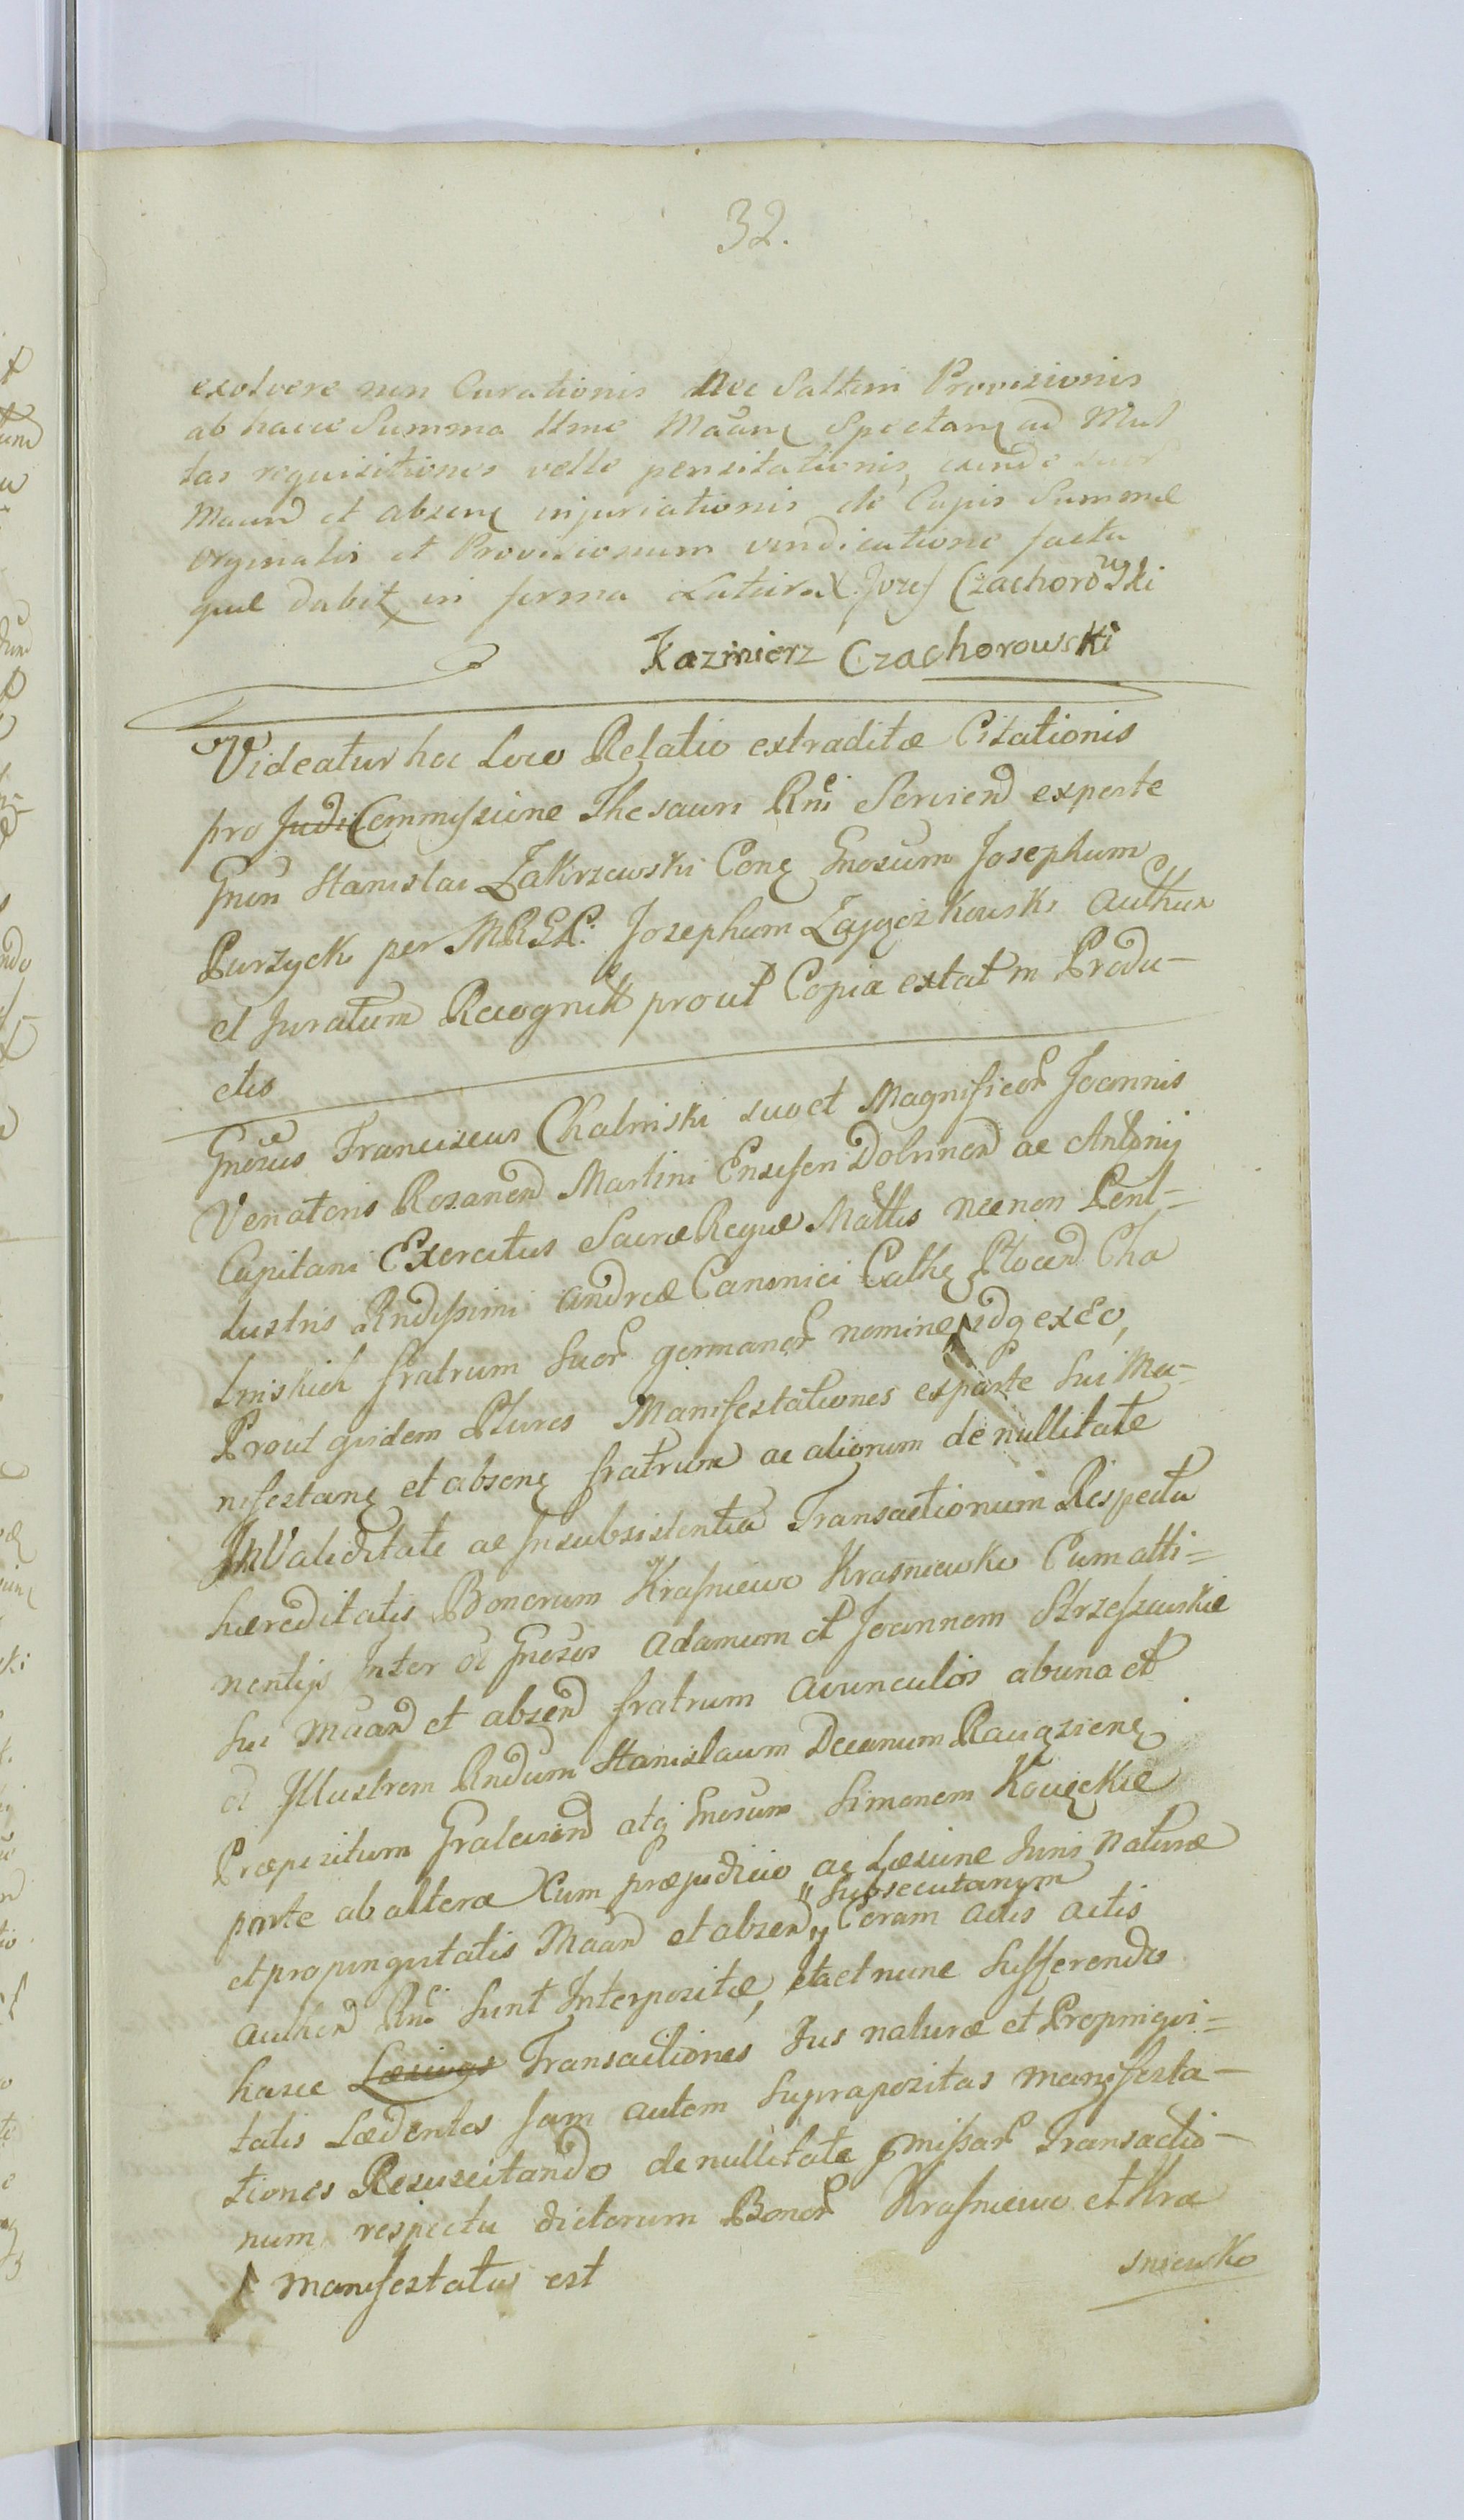 32.
exolvere non Curationis Nec Saltem Provisionis
ab hacce Summa Ilmo Maanę Spectanę ad Mul
tas requisitiones velle pensitationis, exinde suor
Maand et absenę injuriationis de Capis Summæ
Orginalis et Provisionum vindicatione facta
quæ dabit in forma Latiori X. Jozef Czachorowski
Kazimierz Czachorowski
Videatur hoc Loco Relatio extraditæ Citationis
pro Judi Commissione Thesauri Rni Serviend exparte
Gnen Stanislai Zakrzewski Conę Gnosum Josephum
Purzycki per MRGP. Josephum Zaygozkowski authen
et Juratum Recognitt prout Copia extat in Produ-
ctis
Gnosus Franciscus Chalmski suo et Magnificor Joannis
Venatoris Rozanend Martini Ensiferi Dobrinend ac Antonij
Capitani Exercitus Sacræ Regiæ Mattis necnon Perill=
lustris Rndissimi Andreæ Canonici Cathę Plocend Cha
lmskich fratrum Suor germanor nomine idq ex Eo,
Prout quidem Plures Manifestationes exparte sui Ma-
nifestanę et absenę fratrum ac aliorum de nullitate
InValiditate ac Insubsistentia Transactionum Respectu
hæreditatis Bonorum Krasniewo Krasniewko Cum atti=
nentijs Inter et Gnosos Adamum et Joannem Strzeszewskie
sui Maand et absend fratrum avunculos ab una et
et Illustrem Rndum Stanislaum Decanum Raciązienę
Præpositum Gralewiend atq Gnosum Simonem Kowęckie
parte ab altera Cum præjudicio ac Læsione Juris Naturæ
et propinquitatis Maand et absend " Subsecutarum Coram actis actis
authen Rni sunt Interpositæ, ita et nunc Sufferendo
hasce Læsivas Transactiones Jus naturæ et Propinqui=
tatis Lædentes jam autem Suprapositas manifesta-
tiones Resuscitando de nullitate pmissar Transactio-
num respectu dictorum Bonor Krasniewo et Kra
manifestatus est
sniewko